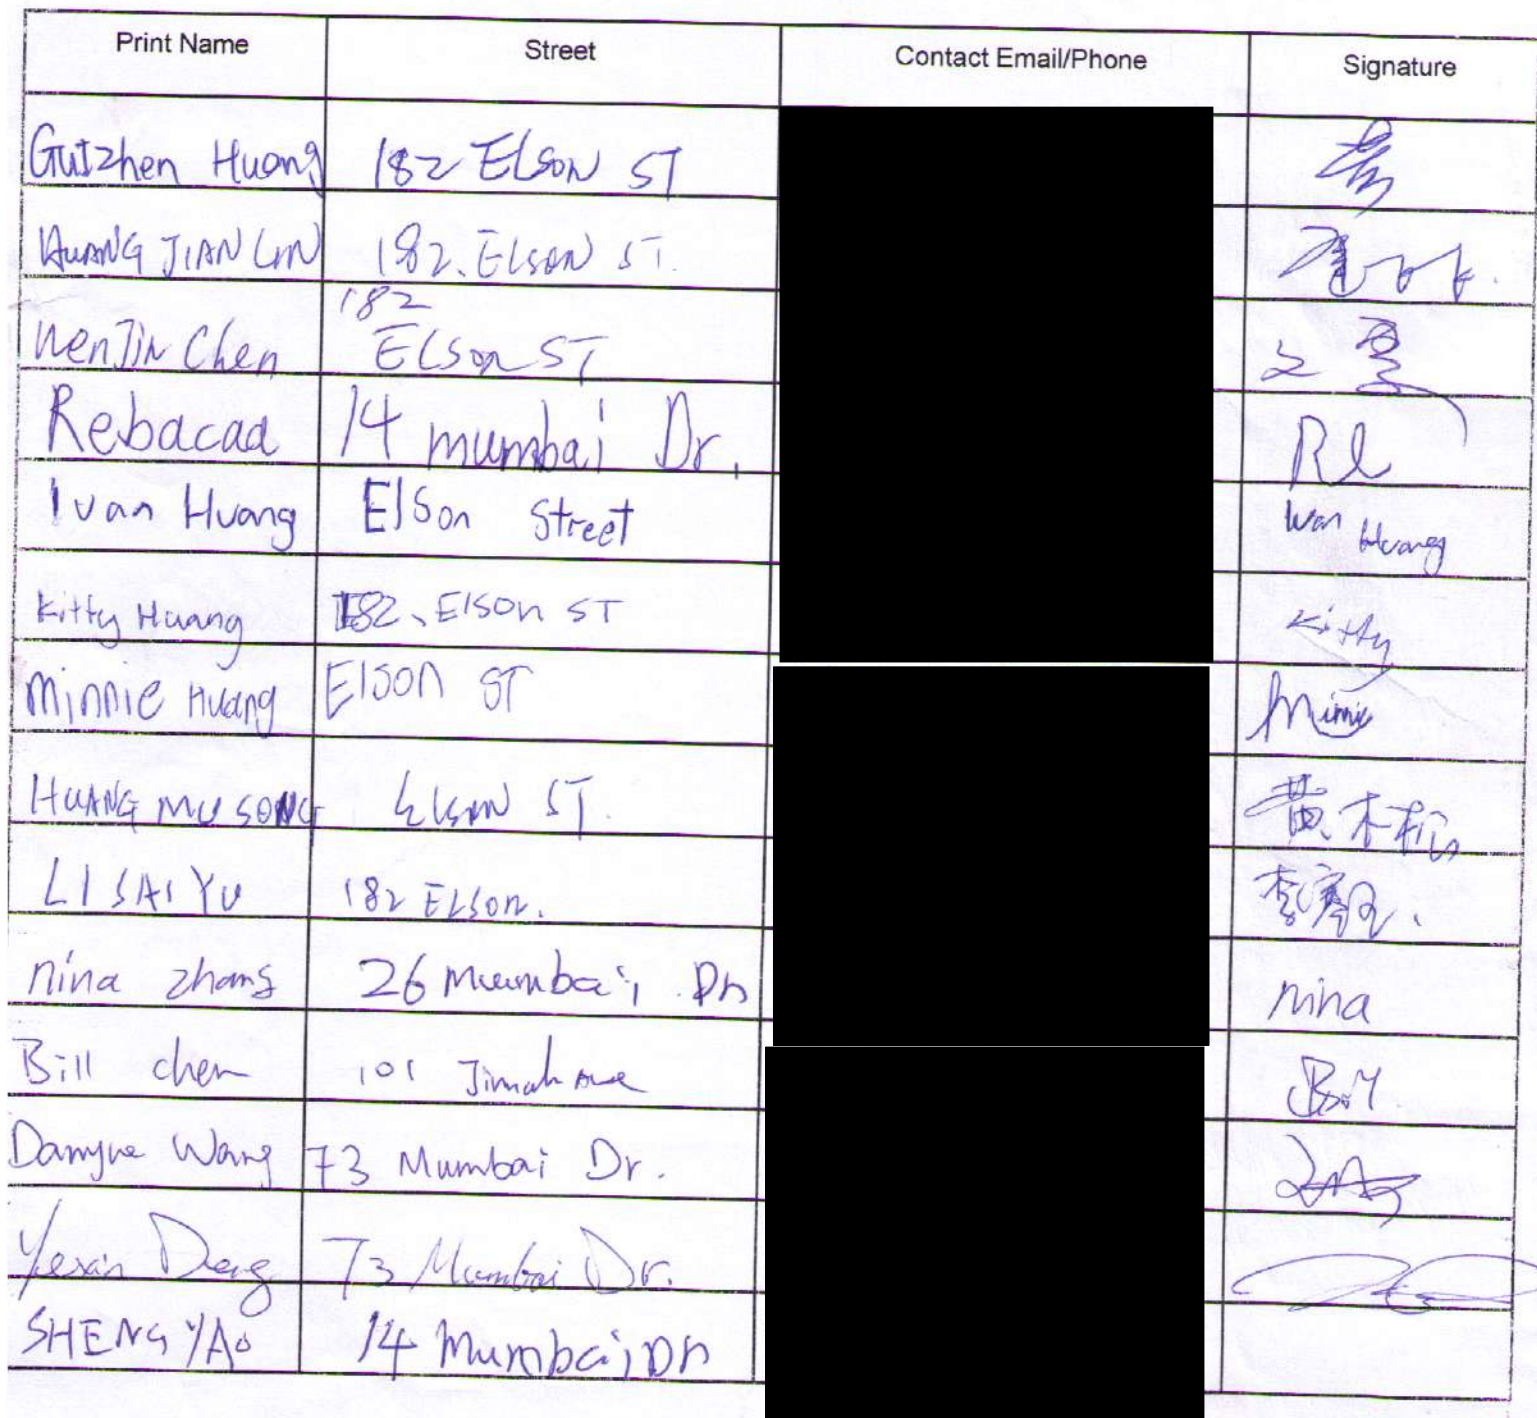 Print Name Street Contact Email/Phone Signature
GuIzhen Huang 182 ELSON ST
HUANG JIAN LIN 182. ELSON ST.
182
WenJin Chen ELSon ST
Rebacaa 14 mumbai Dr.
Ivan Huang ElSon Street Ivan Huang
Kitty Huang 182. ElSon ST Kitty
Minnie Huang ElSON ST
HUANG MU SONG ELSON ST. 黄木松
LI SAI YU 182 ELSON.
nina zhang 26 Mumbai Dr nina
Bill chen 101 Jimah Ave Bill
Wang 73 Mumbai Dr.
Deng 73 Mumbai Dr.
SHENG YAO 14 Mumbai Dr